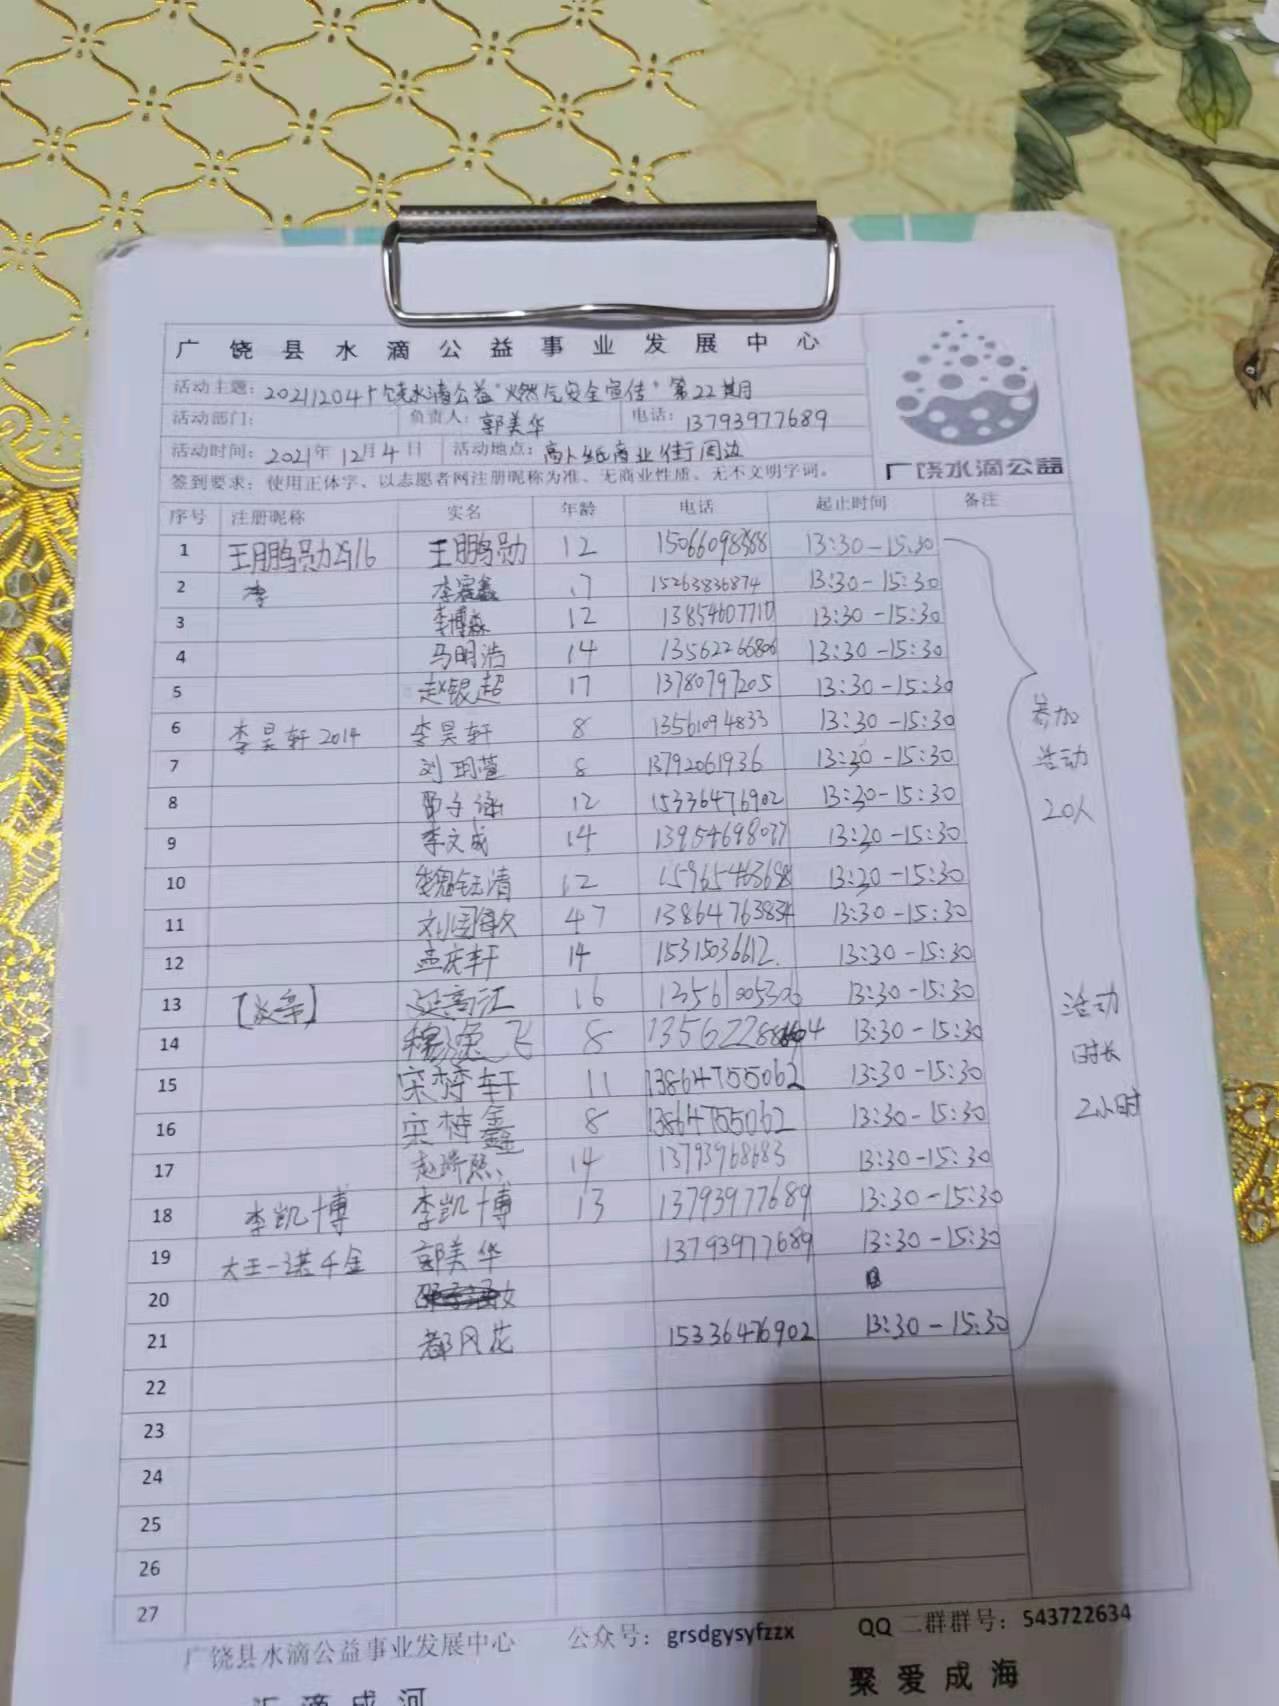 广饶县水滴公益事业发展中心
活动主题：20211204广饶水滴公益"燃气安全宣传"第22期
活动部门： 负责人：郭美华 电话：13793977689
活动时间：2021年12月4日 活动地点：商业街周边
广饶水滴公益
签到要求：使用正体字、以志愿者网注册昵称为准、无商业性质、无不文明字词。
序号 注册昵称 实名 年龄 电话 起止时间 备注
1 王鹏勋 王鹏勋 12 13:30-15:30
2 李 李 15263836874 13:30-15:30
3 李博森 12 13854607710 13:30-15:30
4 马明浩 14 13562266806 13:30-15:30
5 赵银超 17 13780797205 13:30-15:30
6 李昊轩2014 李昊轩 8 13561094833 13:30-15:30
参加
7 刘玥萱 8 13792061936 13:30-15:30
活动
8 子涵 12 15336476902 13:30-15:30
20人
9 李文成 14 13:30-15:30
10 魏钰清 12 13:30-15:30
11 刘国 47 13864763834 13:30-15:30
12 孟庆轩 14 15315036612. 13:30-15:30
13 16 13561005306 13:30-15:30
活动
14 飞 8 13:30-15:30
时长
15 宋梓轩 11 13864755062 13:30-15:30
2小时
16 宋梓鑫 8 13864755062 13:30-15:30
17 赵 14 13793968683 13:30-15:30
18 李凯博 李凯博 13 13793977689 13:30-15:30
19 大王一诺千金 郭美华 13793977689 13:30-15:30
20
21 都风花 15336476902 13:30-15:30
22
23
24
25
26
27
广饶县水滴公益事业发展中心 公众号：grsdgysyfzzx QQ二群群号：543722634
汇滴成河 聚爱成海